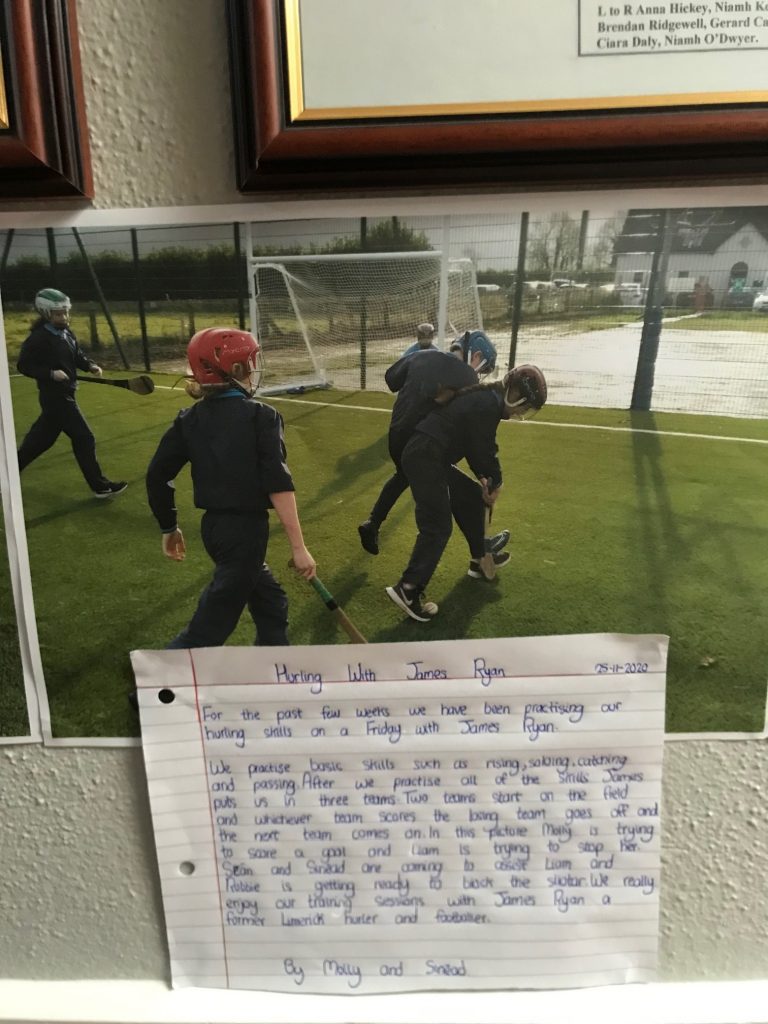 L to R Anna Hickey, Niamh
Brendan Ridgewell, Gerard
Ciara Daly, Niamh O'Dwyer.
Hurling With James Ryan 25-11-2020
For the past few weeks we have been practising our
hurling skills on a Friday with James Ryan.
We practise basic skills such as rising, soloing, catching
and passing. After we practise all of the skills James
puts us in three teams. Two teams start on the field
and whichever team scores the losing team goes off and
the next team comes on. In this picture Molly is trying
to score a goal and Liam is trying to stop her.
Seán and Sinéad are coming to assist Liam and
Robbie is getting ready to block the sliotar. We really
enjoy our training sessions with James Ryan a
former Limerick hurler and footballer.
By Molly and Sinéad